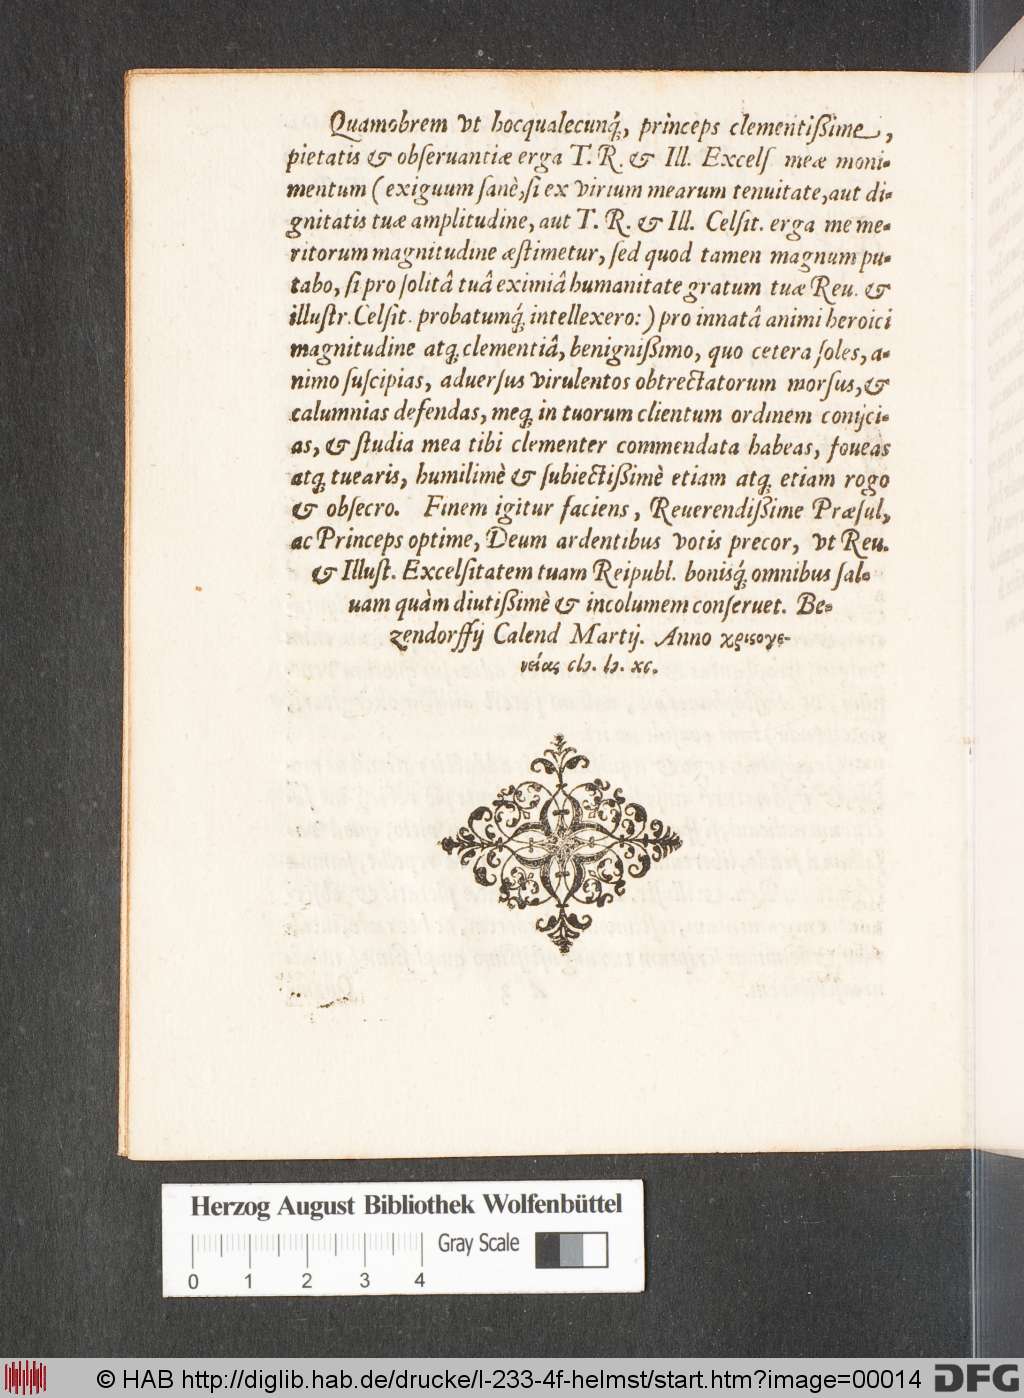 Quamobrem vt hocqualecunq́;, princeps clementißime,
pietatis & obſeruantiæ erga T. R. & Ill. Excelſ meæ moni-
mentum (exiguum ſanè, ſi ex virium mearum tenuitate, aut di-
gnitatis tuæ amplitudine, aut T. R. & Ill. Celſit. erga me me-
ritorum magnitudine æſtimetur, ſed quod tamen magnum pu-
tabo, ſi pro ſolitâ tuâ eximiâ humanitate gratum tuæ Reu. &
illuſtr. Celſit. probatumq́; intellexero:) pro innatâ animi heroici
magnitudine atq; clementiâ, benignißimo, quo cetera ſoles, a-
nimo ſuſcipias, aduerſus virulentos obtrectatorum morſus, &
calumnias defendas, meq; in tuorum clientum ordinem conijci-
as, & ſtudia mea tibi clementer commendata habeas, foueas
atq; tuearis, humilimè & ſubiectißimè etiam atq; etiam rogo
& obſecro. Finem igitur faciens, Reuerendißime Præſul,
ac Princeps optime, Deum ardentibus votis precor, vt Reu.
& Illuſt. Excelſitatem tuam Reipubl. bonisq́; omnibus ſal-
uam quàm diutißimè & incolumem conſeruet. Be-
zendorffij Calend Martij. Anno χριςογε-
νείας cIɔ. Iɔ. xc.
Herzog August Bibliothek Wolfenbüttel
Gray Scale
0 1 2 3 4
© HAB http://diglib.hab.de/drucke/l-233-4f-helmst/start.htm?image=00014
DFG